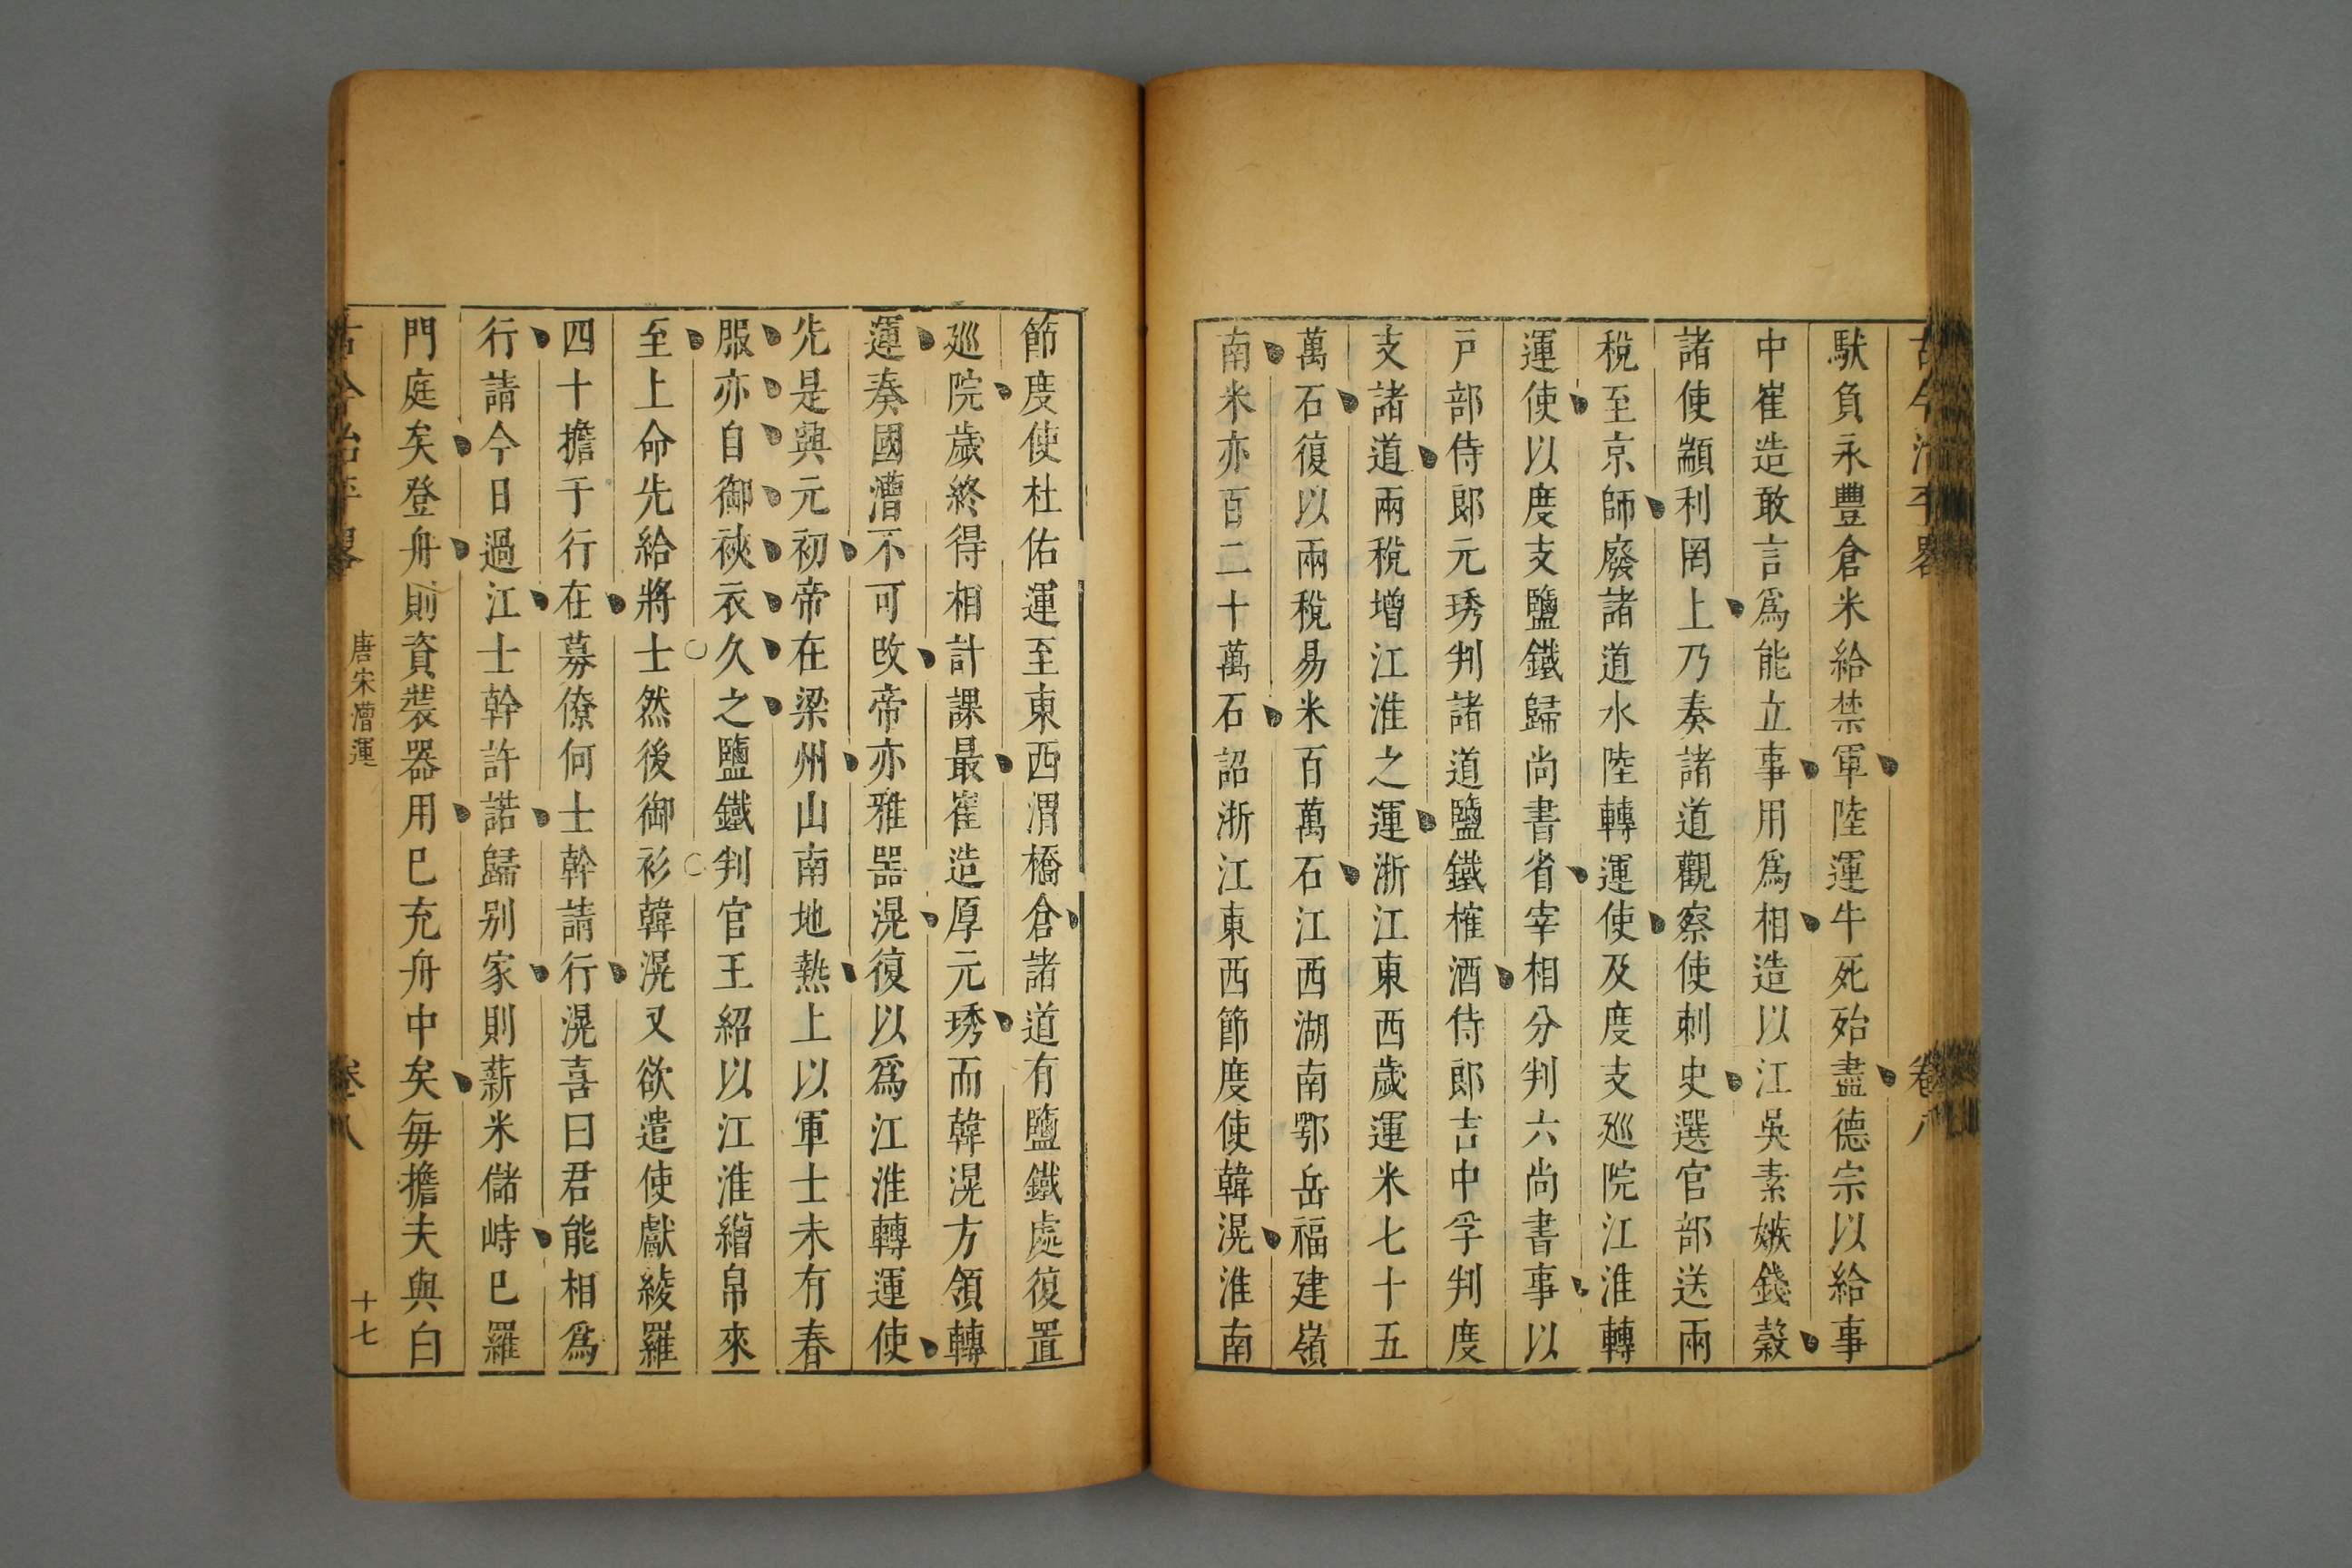 古今治平畧 卷八
馱負永豐倉米給禁軍陸運牛死殆盡德宗以給事
中崔造敢言爲能立事用爲相造以江吳素嫉錢穀
諸使顓利罔上乃奏諸道觀察使刺史選官部送兩
稅至京師廢諸道水陸轉運使及度支廵院江淮轉
運使以度支鹽鐵歸尚書省宰相分判六尚書事以
戸部侍郞元琇判諸道鹽鐵榷酒侍郞吉中孚判度
支諸道兩稅增江淮之運浙江東西歲運米七十五
萬石復以兩稅易米百萬石江西湖南鄂岳福建嶺
南米亦百二十萬石詔浙江東西節度使韓滉淮南
節度使杜佑運至東西渭橋倉諸道有鹽鐵處復置
廵院歲終得相計課最崔造厚元琇而韓滉方領轉
運奏國漕不可改帝亦雅器滉復以爲江淮轉運使
先是興元初帝在梁州山南地熱上以軍士未有春
服亦自御裌衣久之鹽鐵判官王紹以江淮繒帛來
至上命先給將士然後御衫韓滉又欲遣使獻綾羅
四十擔于行在募僚何士幹請行滉喜曰君能相爲
行請今日過江士幹許諾歸别家則薪米儲峙已羅
門庭矣登舟則資裝器用已充舟中矣每擔夫與白
古今治平畧 唐宋漕運 卷八 十七